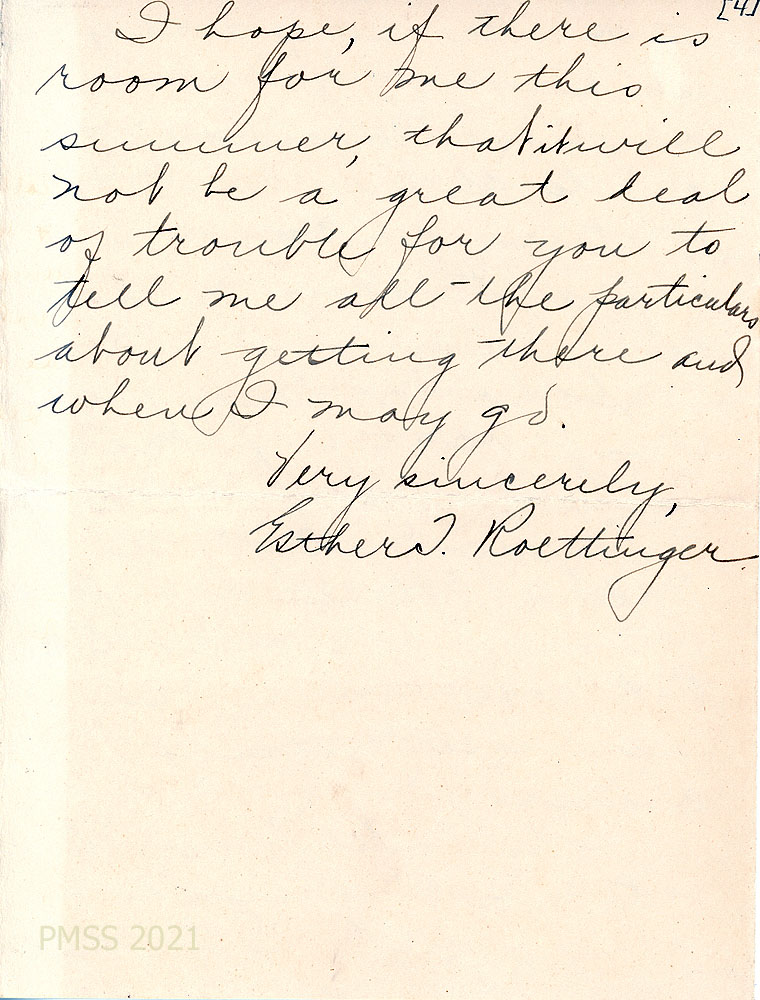 [4]
I hope, if there is
room for me this
summer, that it will
not be a great deal
of trouble for you to
tell me all the particulars
about getting there and
when I may go.
Very sincerely,
Esther J. Roettinger
PMSS 2021